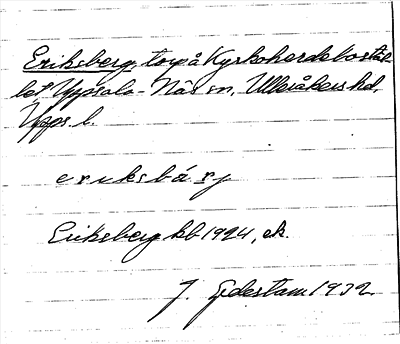 Eriksberg, torp å Kyrkoherdebostäl-
let Uppsala-Näs sn, Ulleråkers hd,
Upps. l.
eriksbárj
Eriksberg kb 1924, ek.
J. Edestam 1932